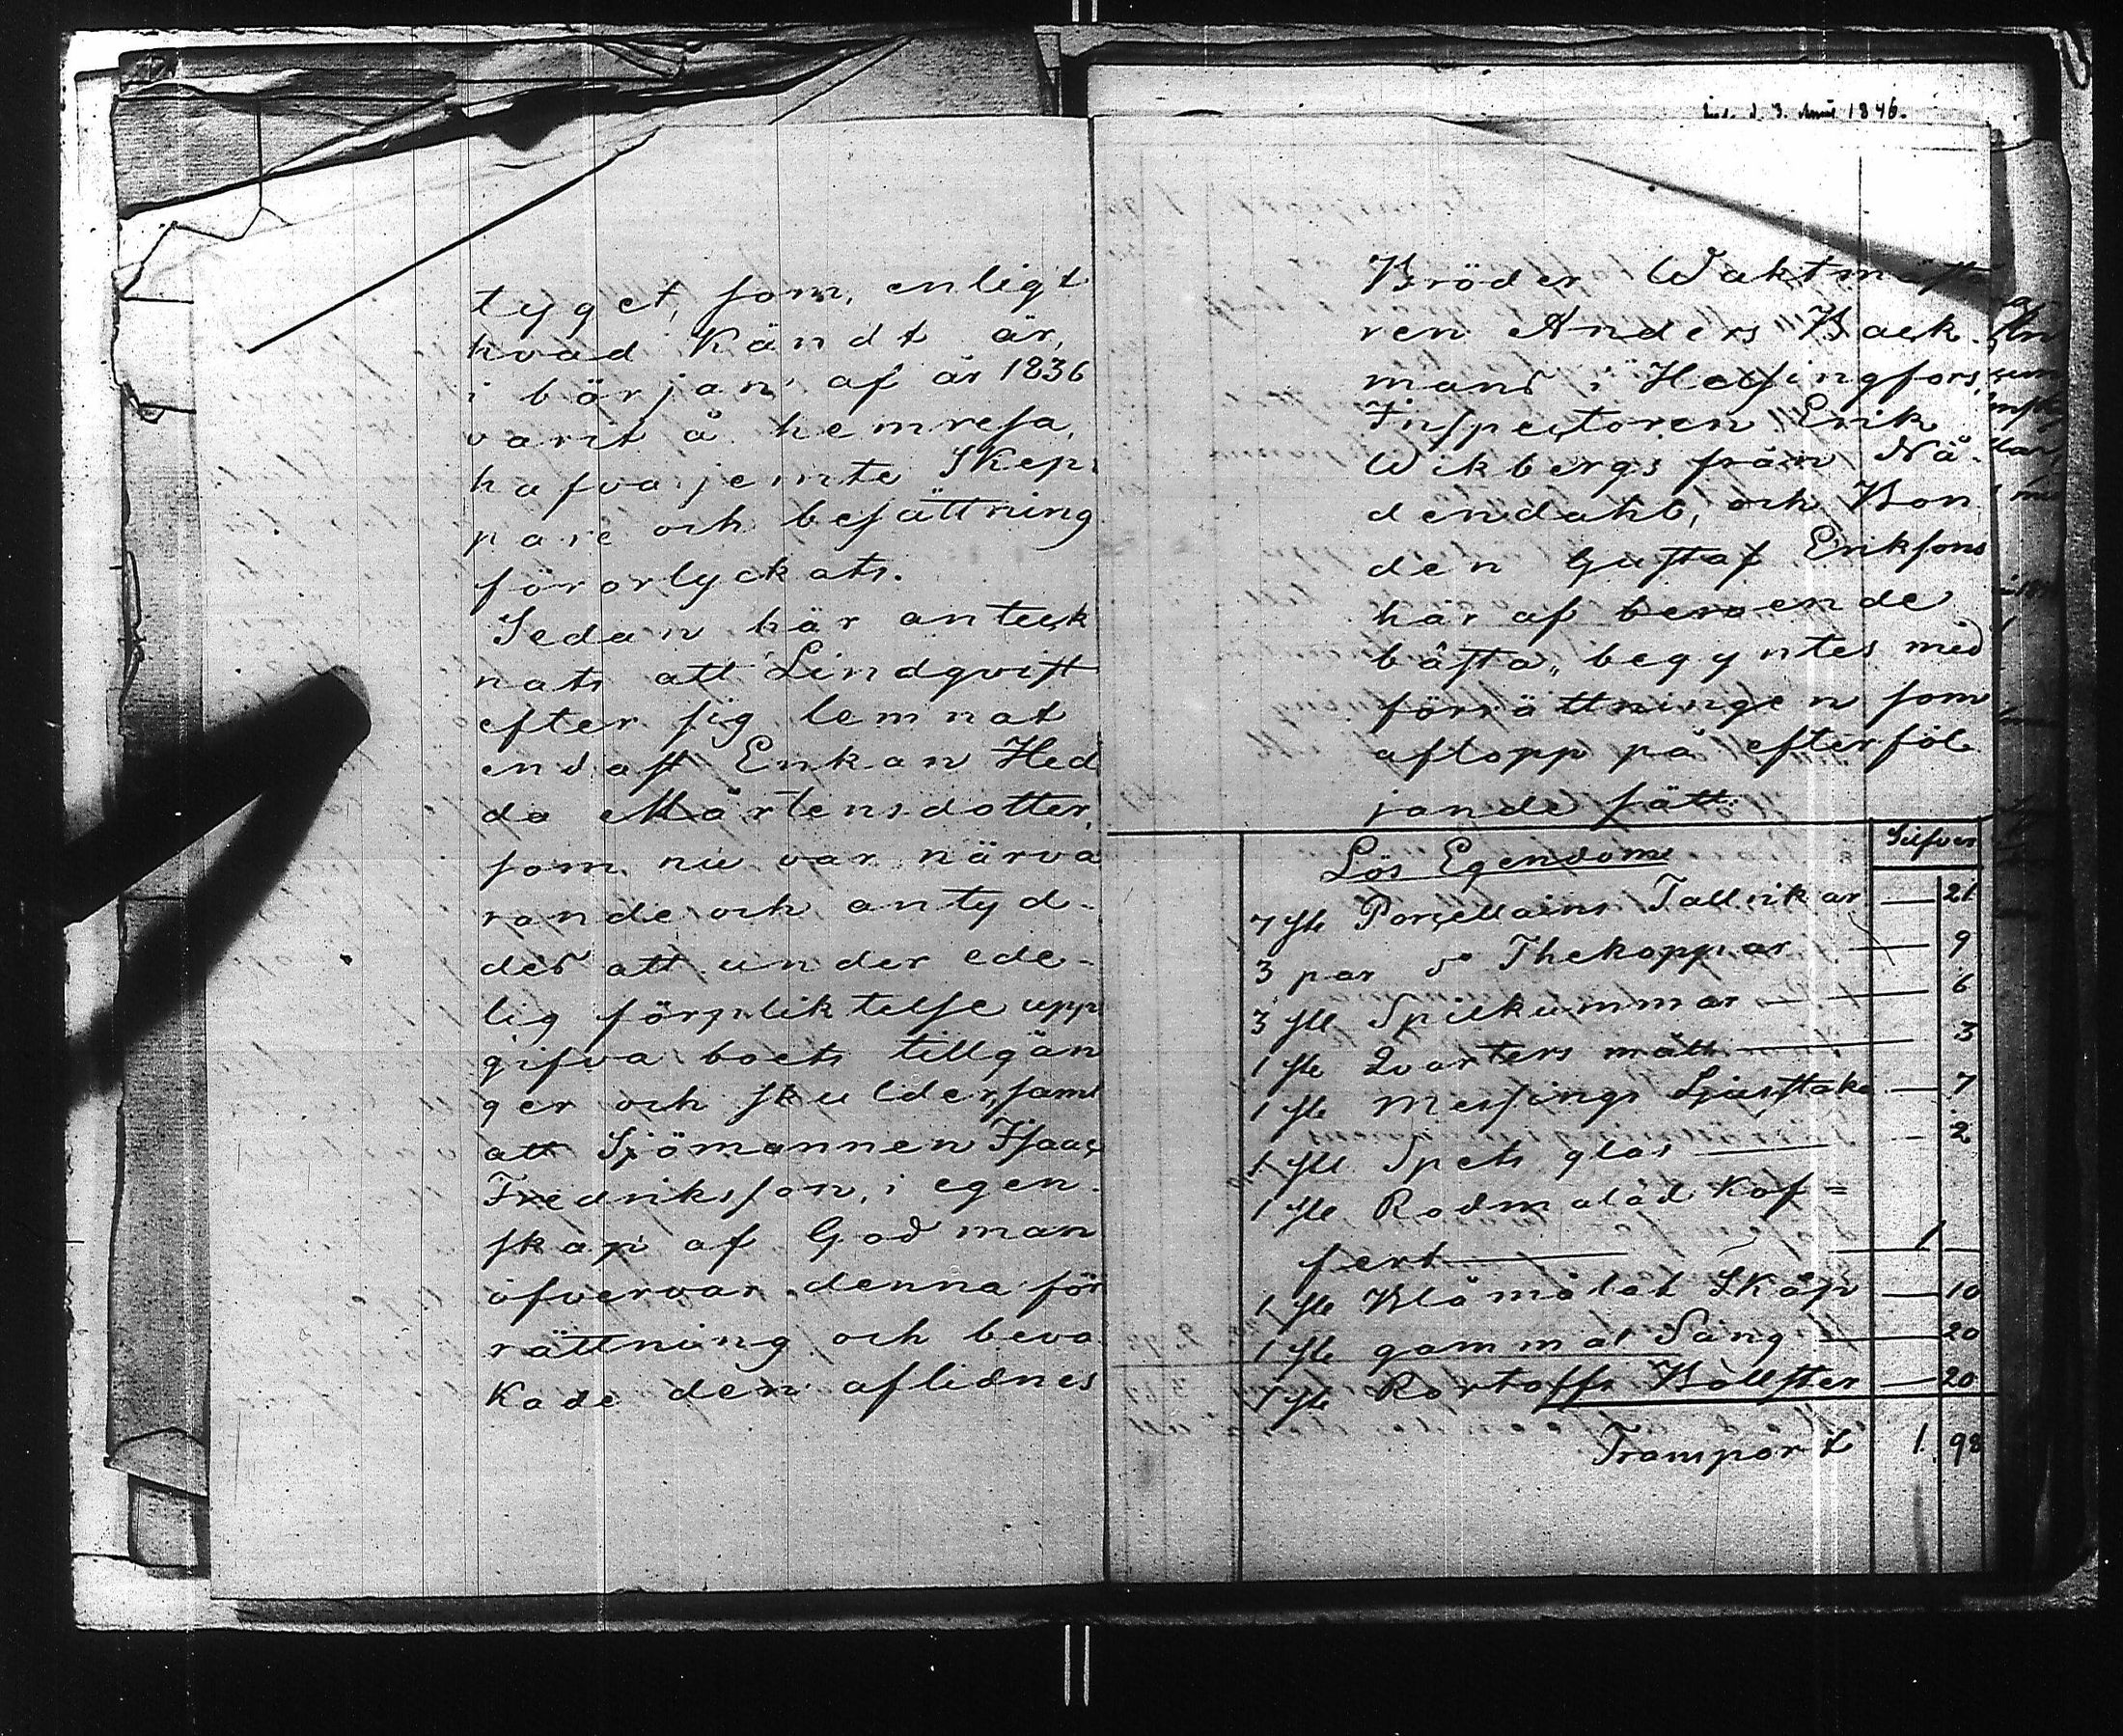 tyget, som, enligt
hvad Kändt är,
i början af år 1836
varit å hemresa,
hafva jemte Skep-
pare och besättning
förorlyckats.
Sedan här anteck
nats att Lindqvist
efter sig lemnat
endast Enkan Hed
da Mårtensdotter,
som nu var närva
rande och antyd-
des att under ede-
lig förpliktelse upp
gifva boets tillgån
ger och skulder, samt
att Sjömannen Isaac
Fredriksson, i egen-
skap af God man
öfvervar denna för
rättning och beva
kade den aflidnes
d. 3. 1846.
Bröder Waktmästa
ren Anders Back-
mans i Helsingfors,
Inspectoren Erik
Wikbergs från Nå-
dendahl, och Bon
den Gustaf Eriksons
här af beroende
bästa, begyntes med
förrättningen som
aflopp på efterföl
jande sätt:
Silfver
Lös Egendom
7 st. Porcellains Tallrikar — 21
3 par do Thekoppar — 9
3 st. Spilkummar — 6
1 st. Qvarters mått — 3
1 st. Messings Ljusstake — 7
1 st. Spets glas — 2
1 st. Rödmålad Kof=
fert — 1 —
1 st. Blåmålat Skåp — 10
1 st. gammal Säng — 20
1 st. Bolster — 20
Transport 1. 98